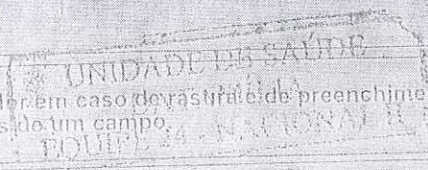 UNIDADE DE SAÚDE
em caso de rasura e de preenchime
de um campo
EQUIPE 24 - NACIONAL